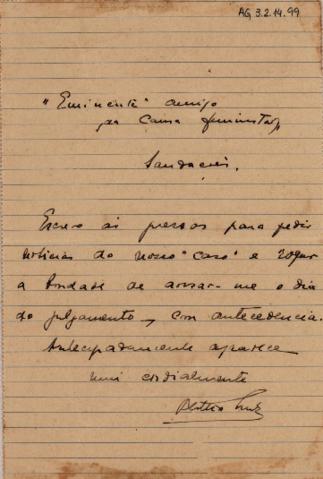 AG 3.2.14.99
"Eminente" amigo
da Causa feminista,
Saudações.
Escrevo às pressas para pedir
notícias do nosso "caso" e rogar
a bondade de avisar-me o dia
do julgamento, com antecedencia.
Antecipadamente agradece
mui cordialmente